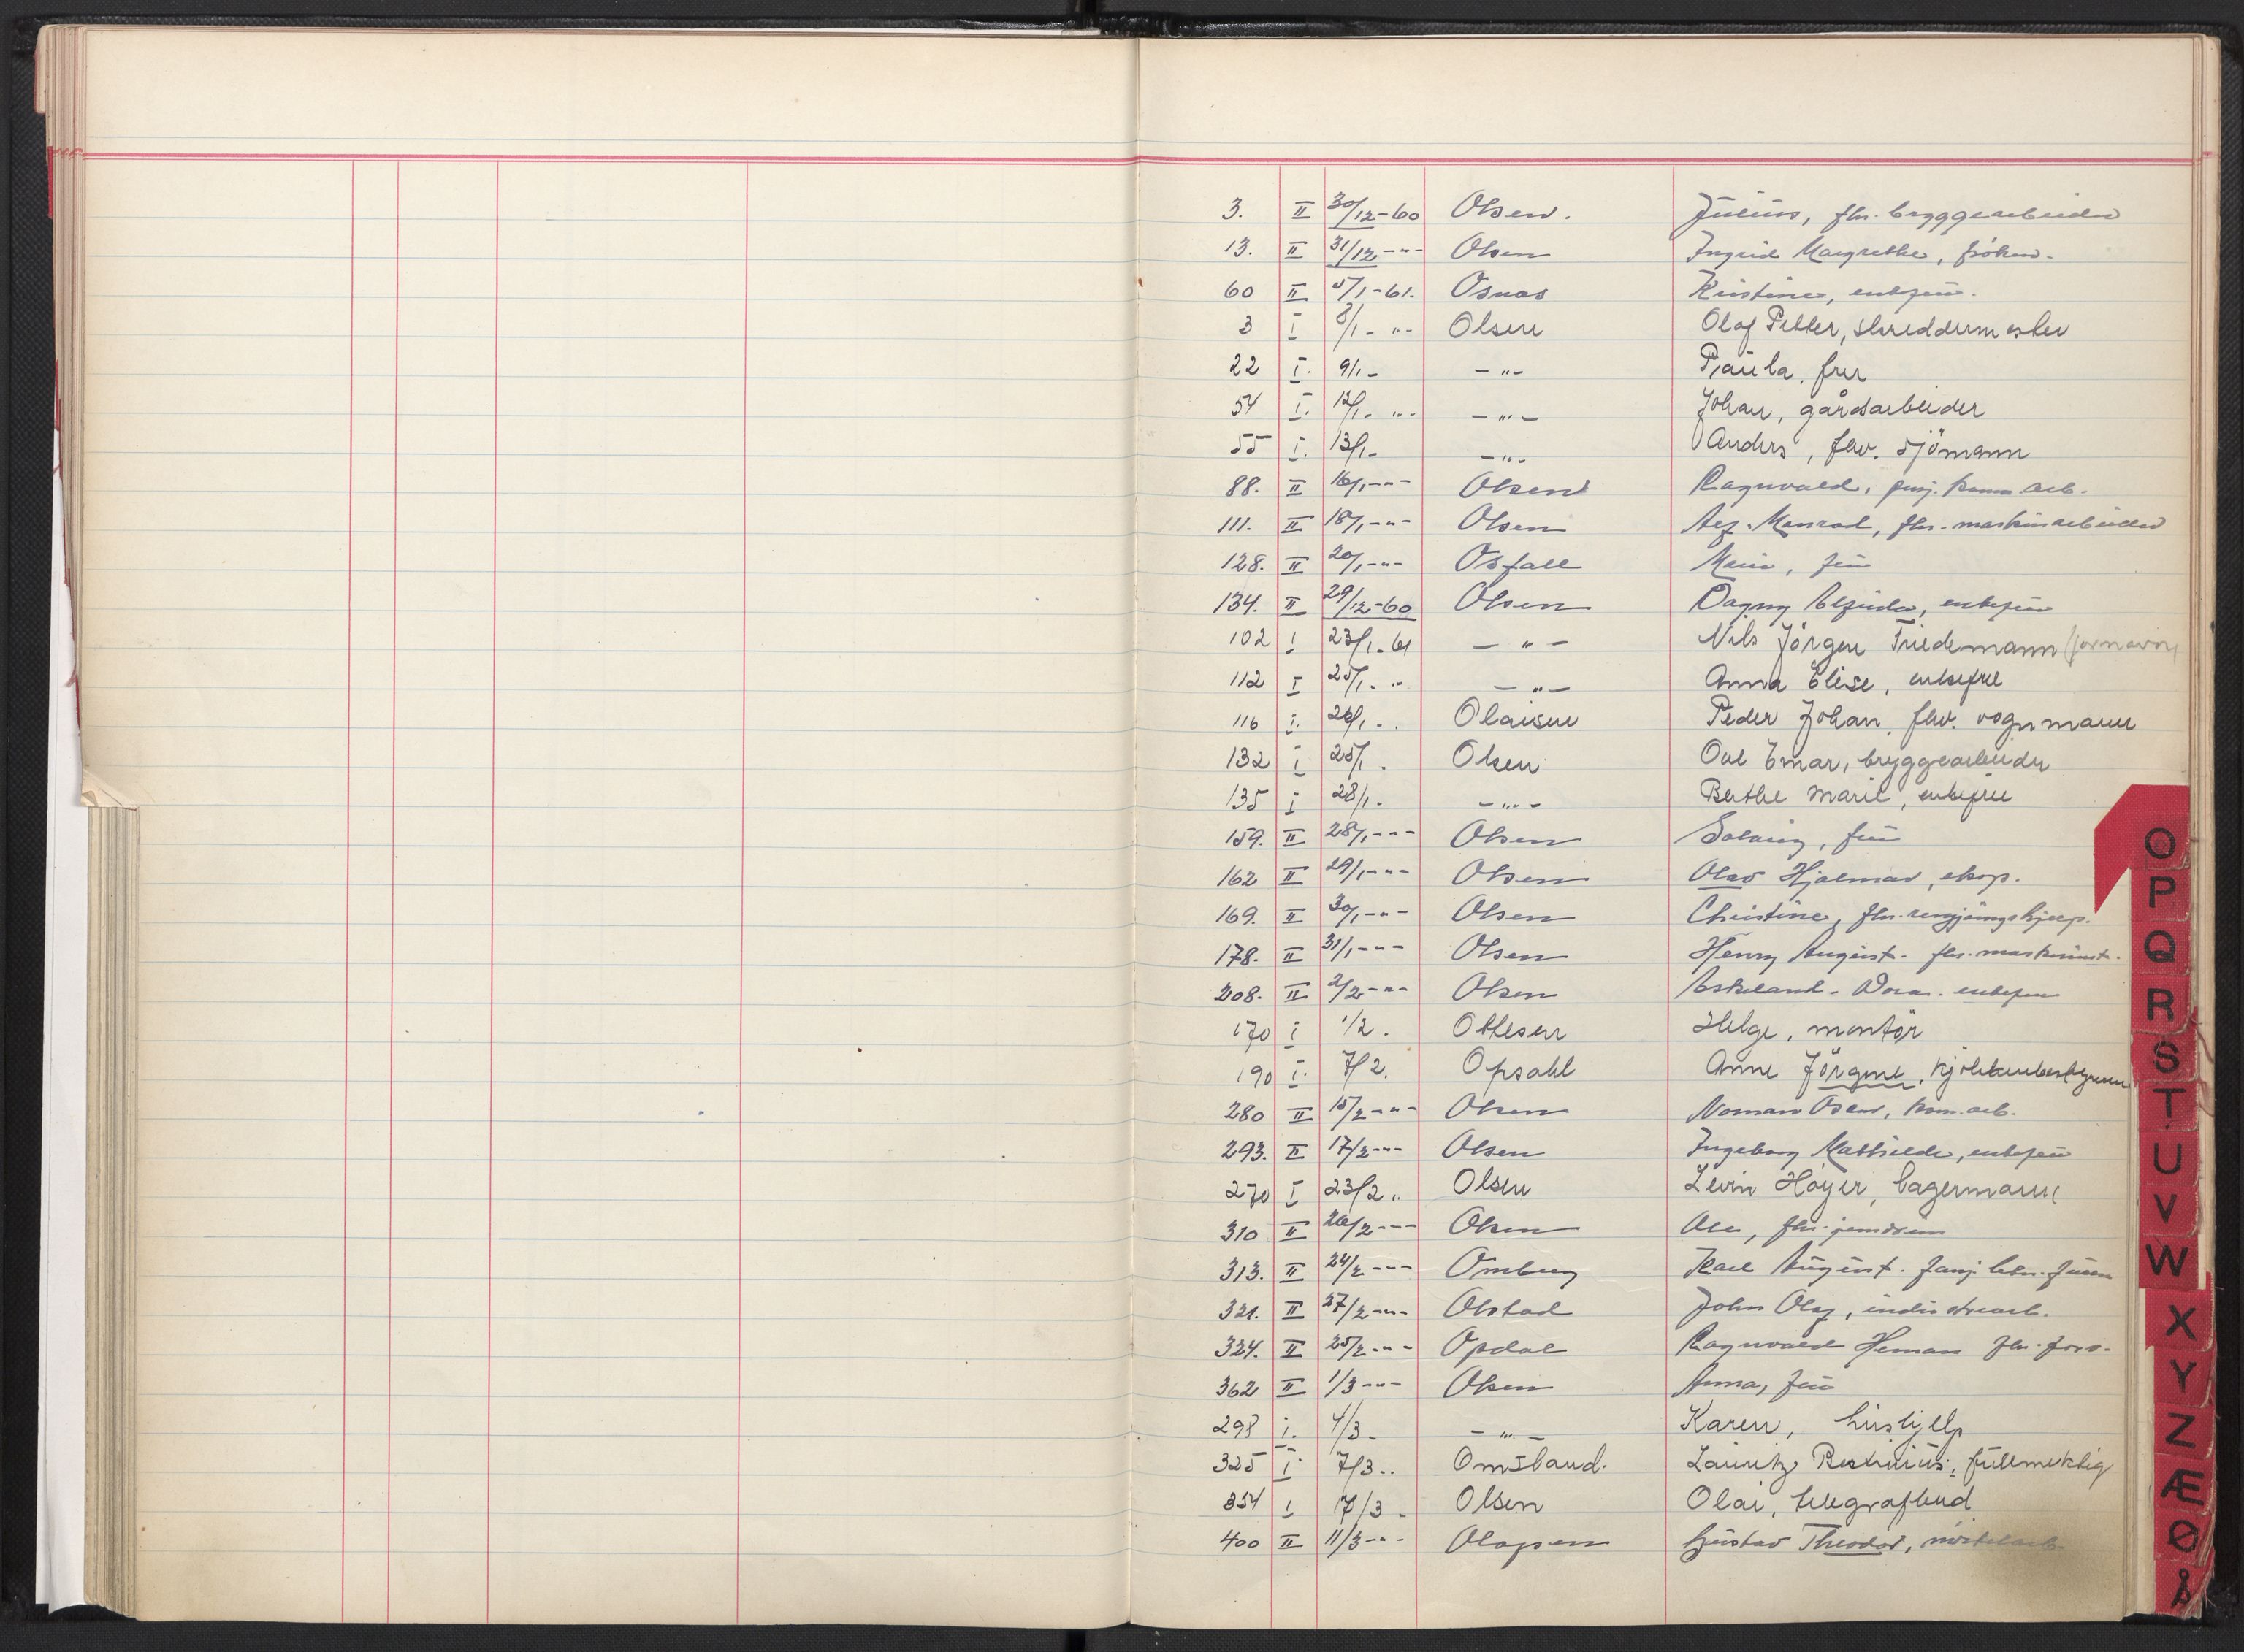 3. II 30/12-60 Olsen. Julius, fhv. bryggearbeider
13. II 31/12 -"- Olsen Ingrid Margrethe, frøken.
60 II 5/1-61. Osnas Kristine, enkefru.
3 I 8/1- "- Olsen Olaf Petter, skreddermester
22 I. 9/1- -"- Paula, fru
54 I. 12/1- "- -"- Johan, gårdsarbeider
55 I. 13/1- -"- Anders, fhv. sjömann
88. II 16/1-"- Olsen Ragnvald, pensj. komm. arb.
111. II 18/1-"- Olsen Alf. Konrad, fhv. maskinarbeider
128. II 20/1-"- Osfall Marie, fru
134. II 29/12-60 Olsen Dagny Elfrida, enkefru
102 I 23/1-61 -"- Nils Jörgen Friedemann (fornavn)
112 I 25/1- "- -"- Anna Elise, enkefru
116 I. 26/1- Olaisen Peder Johan, fhv. vognmann
132 I 25/1. Olsen Ole Emar, bryggearbeider
135 I 28/1. -"- Berthe Marie, enkefru
159. II 28/1-"- Olsen Solveig, fru
162 II 29/1-"- Olsen Olav Hjalmar, eksp.
169. II 30/1-"- Olsen Christine, fhv. rengjøringshjelp.
178. II 31/1-"- Olsen Henry August. fhv. maskinist.
208. II 2/2-"- Olsen Eskeland- Dora. enkefru
170 I 1/2. Ottesen Helge, montör
190 I. 7/2. Opsahl Anne Jörgine, kjökkenbestyrerinne
280 II 15/2-"- Olsen Norman Oscar, kom. arb.
293. II 17/2-"- Olsen Ingeborg Mathilde, enkefru
270 I 23/2 " Olsen Levin Höyer, lagermann
310 II 26/2-"- Olsen Ole, fhv.
313. II 24/2-"- Omberg Karl August.
321. II 27/2-"- Olstad John Olaf, industriarb.
324. II 25/2-"- Opdal Ragnvald Herman fhv. fors.
362 II 1/3-"- Olsen Anna, fru
298 I. 4/3- -"- Karen, hushjelp
325 I 7/3.. Omsland. Lauritz Bertinius, fullmektig
354 I 17/3- Olsen Olai, telegrafbud
400 II 11/3-"- Olafsen Gustav Theodor,
O
P
Q
R
S
T
U
V
W
X
Y
Z
Æ
Ø
Å